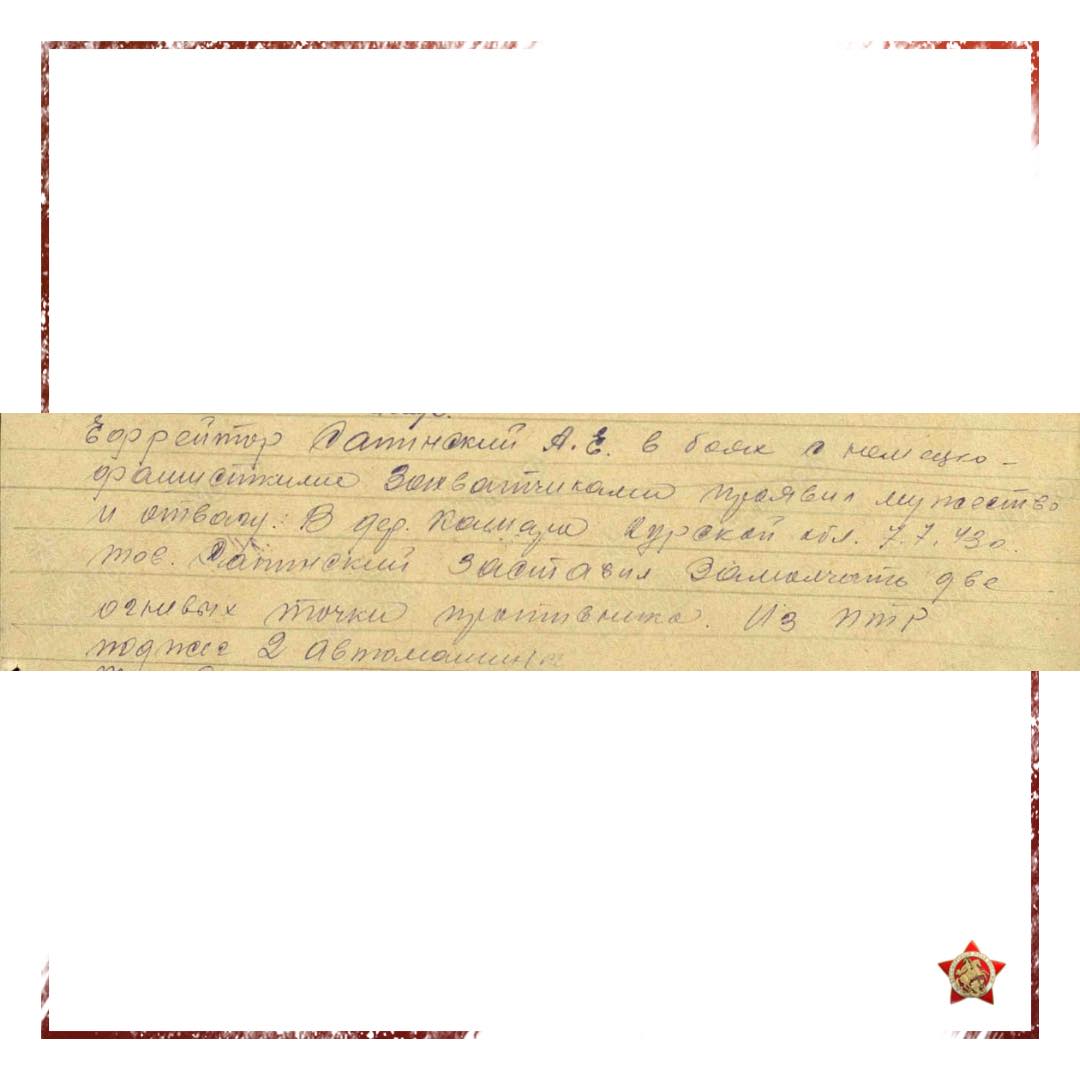 Ефрейтор Сапинский А.Е. в боях с немецко-
фашисткими захватчиками проявил мужество
и отвагу. В дер. Курской обл. 7.7.43г.
тов. Сапинский заставил замолчать две
огневых точки противника. Из ПТР
поджег 2 автомашины